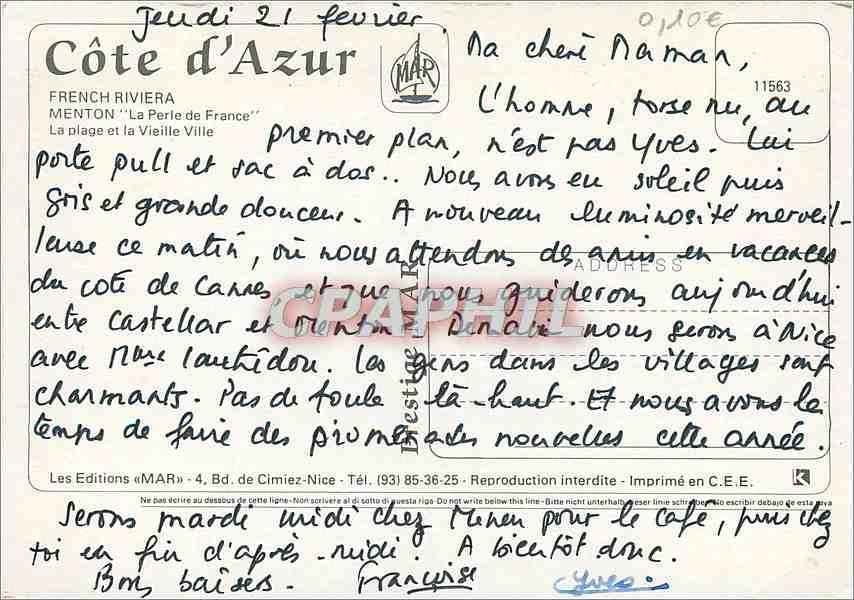 Jeudi 21 fevrier.
0,10€
Côte d'Azur
MAR
FRENCH RIVIERA
MENTON "La Perle de France"
La plage et la Vieille Ville
11563
Ma chère Maman,
L'homme, torse nu, au
premier plan, n'est pas Yves. Lui
porte pull et sac à dos.. Nous avons eu soleil puis
gris et grande douceur. A nouveau luminosité merveil-
leuse ce matin, où nous attendons des amis en vacances
ADDRESS
du coté de Cannes, et que nous guiderons aujourd'hui
entre Castellar et Menton. Demain nous serons à Nice
CPAPHIL
avec Mme . Les gens dans les villages sont
charmants. Pas de foule là-haut. Et nous avons le
temps de faire des promenades nouvelles cette année.
Prestige MAR
Les Editions «MAR» - 4, Bd. de Cimiez-Nice - Tél. (93) 85-36-25 - Reproduction interdite - Imprimé en C.E.E.
K
Ne pas écrire au dessous de cette ligne-Non scrivere al di sotto di questa riga-Do not write below this line-Bitte nicht unterhalb dieser linie schreiben-No escribir debajo de esta raya
Serons mardi midi chez pour le café, puis chez
toi en fin d'après-midi. A bientôt donc.
Bons baisers. Françoise Yves